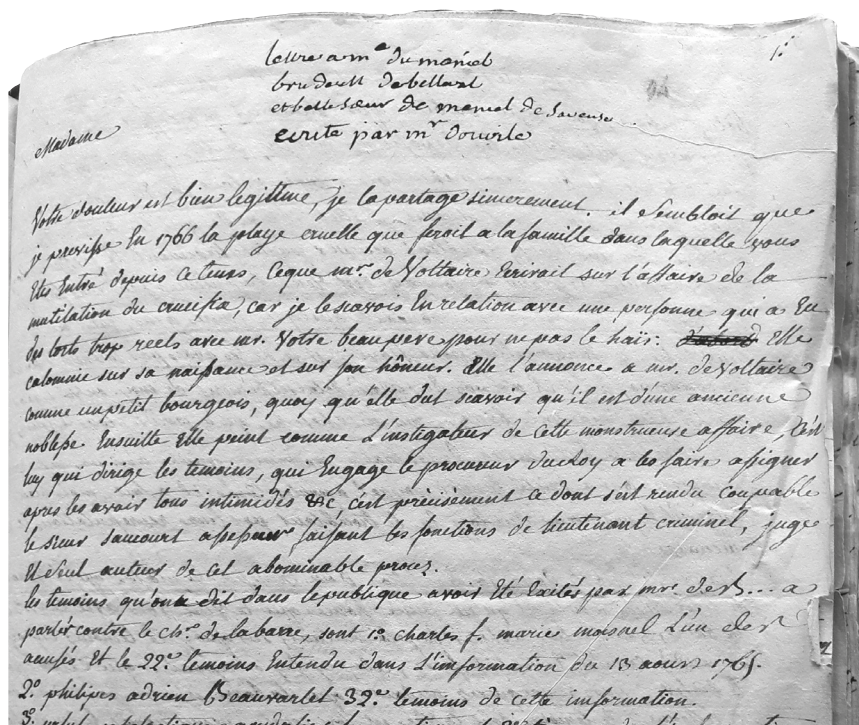 1.º
lettre a mᵉ du maniel
bru de M de bellart
et belle sœur de maniel de Saveuse
94
ecrite par mʳ douvile
Madame
Votre douleur est bien legitime, je la partage sincerement. il Sembloit que
je previsse En 1766 la playe cruelle que feroit a la famille dans laquelle vous
Etes Entré depuis ce tems, ce que mr. de Voltaire Ecrirait sur l'affaire de la
mutilation du crucifix, car je le scavois En relation avec une personne qui a Eu
des torts trop reels avec mr. Votre beaupere pour ne pas le haïr. Elle
calomnie sur sa naissance et sur son hôneur. Elle l'annonce a mr. de Voltaire
comme un petit bourgeois, quoy qu'elle dut scavoir qu'il est d'une ancienne
noblesse Ensuitte Elle peint comme L'instigateur de cette monstrueuse affaire, c'est
luy qui dirige les temoins, qui Engage le procureur du Roy a les faire assigner
apres les avoir tous intimidés &c, c'est précisément ce dont s'est rendu coupable
le sieur saucourt assesseur faisant les fonctions de lieutenant criminel, juge
Et Seul auteur de cet abominable procez.
les temoins qu'on a dit dans le publique avoir Eté Exités par mr. de B... a
parler contre le chᵉʳ. de labarre, sont 1.º charles f. marie moisnel L'un des
accusés Et le 22.ᵉ temoins Entendu dans L'information du 13 aoust 1765.
2.º philipes adrien Beauvarlet 32.ᵉ temoins de cette information.
3.º